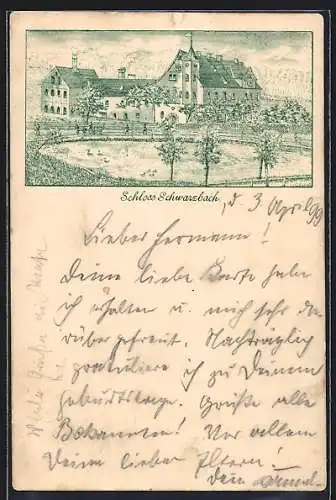 Schloss Schwarzbach, d 3. April 99
Lieber Hermann!
Deine liebe Karte habe
ich erhalten u. mich sehr da-
rüber gefreut. Nachträglich
gratuliere ich zu Deinem
Geburtstage. Grüße alle
Bekannten! Vor allem
Deine lieben Eltern!
Dein
Viele Grüße